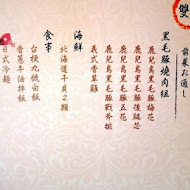 雙
前菜お通し
黑毛豚燒肉組
鹿兒島黑毛豚梅花
鹿兒島黑毛豚後腿芯
鹿兒島黑毛豚五花
鹿兒島黑毛豚戰斧排
義式香草雞
海鮮
北海道干貝2顆
食事
台梗九號白飯
香蔥牛油拌飯
日式冷麵